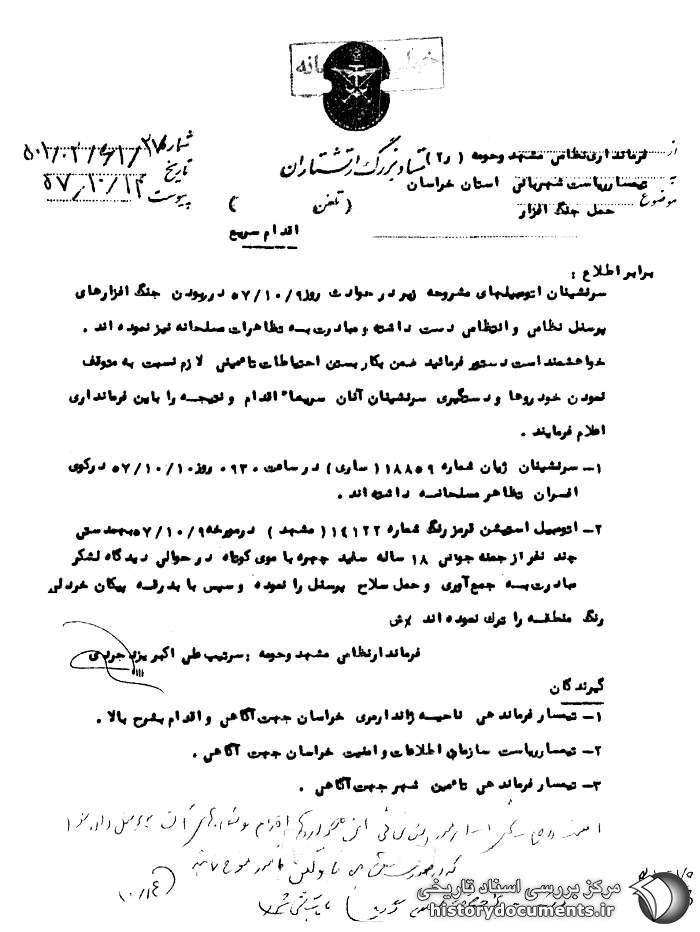 خیلی محرمانه
شماره
تاریخ
۵۷/۱۰/۱۲ پیوست
ستاد بزرگ ارتشتاران
از فرمانداری نظامی مشهد وحومه ( ر۲ )
به تیمسار ریاست شهربانی استان خراسان
موضوع حمل جنگ افزار
( تلفن )
اقدام سریع
برابر اطلاع :
سرنشینان اتومبیلهای مشروحه زیر در حوادث روز ۵۷/۱۰/۹ در ربودن جنگ افزارهای
پرسنل نظامی و انتظامی دست داشته و مبادرت به تظاهرات مسلحانه نیز نموده اند .
خواهشمند است دستور فرمائید ضمن بکار بستن احتیاطات تامینی لازم نسبت به متوقف
نمودن خودروها و دستگیری سرنشینان آنان سریعا" اقدام و نتیجه را باین فرمانداری
اعلام فرمایند .
۱- سرنشینان ژیان شماره ۱۸۸۵۹ ( ساری ) در ساعت ۰۹۳۰ روز ۵۷/۱۰/۱۰ در کوی
افسران تظاهر مسلحانه داشته اند .
۲- اتومبیل استیشن قرمز رنگ شماره ۱۴۱۲۲ ( مشهد ) در مورخه ۵۷/۱۰/۹ بهمدستی
چند نفر از جمله جوانی ۱۸ ساله سفید چهره با موی کوتاه در حوالی دیدگاه لشکر
مبادرت به جمع آوری و حمل سلاح پرسنل را نموده و سپس با بدرقه پیکان خردلی
رنگ منطقه را ترک نموده اند
فرماندار نظامی مشهد وحومه : سرتیپ علی اکبر یزدجردی
گیرندگان
۱- تیمسار فرماندهی ناحیه ژاندارمری خراسان جهت آگاهی و اقدام بشرح بالا .
۲- تیمسار ریاست سازمان اطلاعات و امنیت خراسان جهت آگاهی .
۳- تیمسار فرماندهی تامین شهر جهت آگاهی .
مرکز بررسی اسناد تاریخی
historydocuments.ir